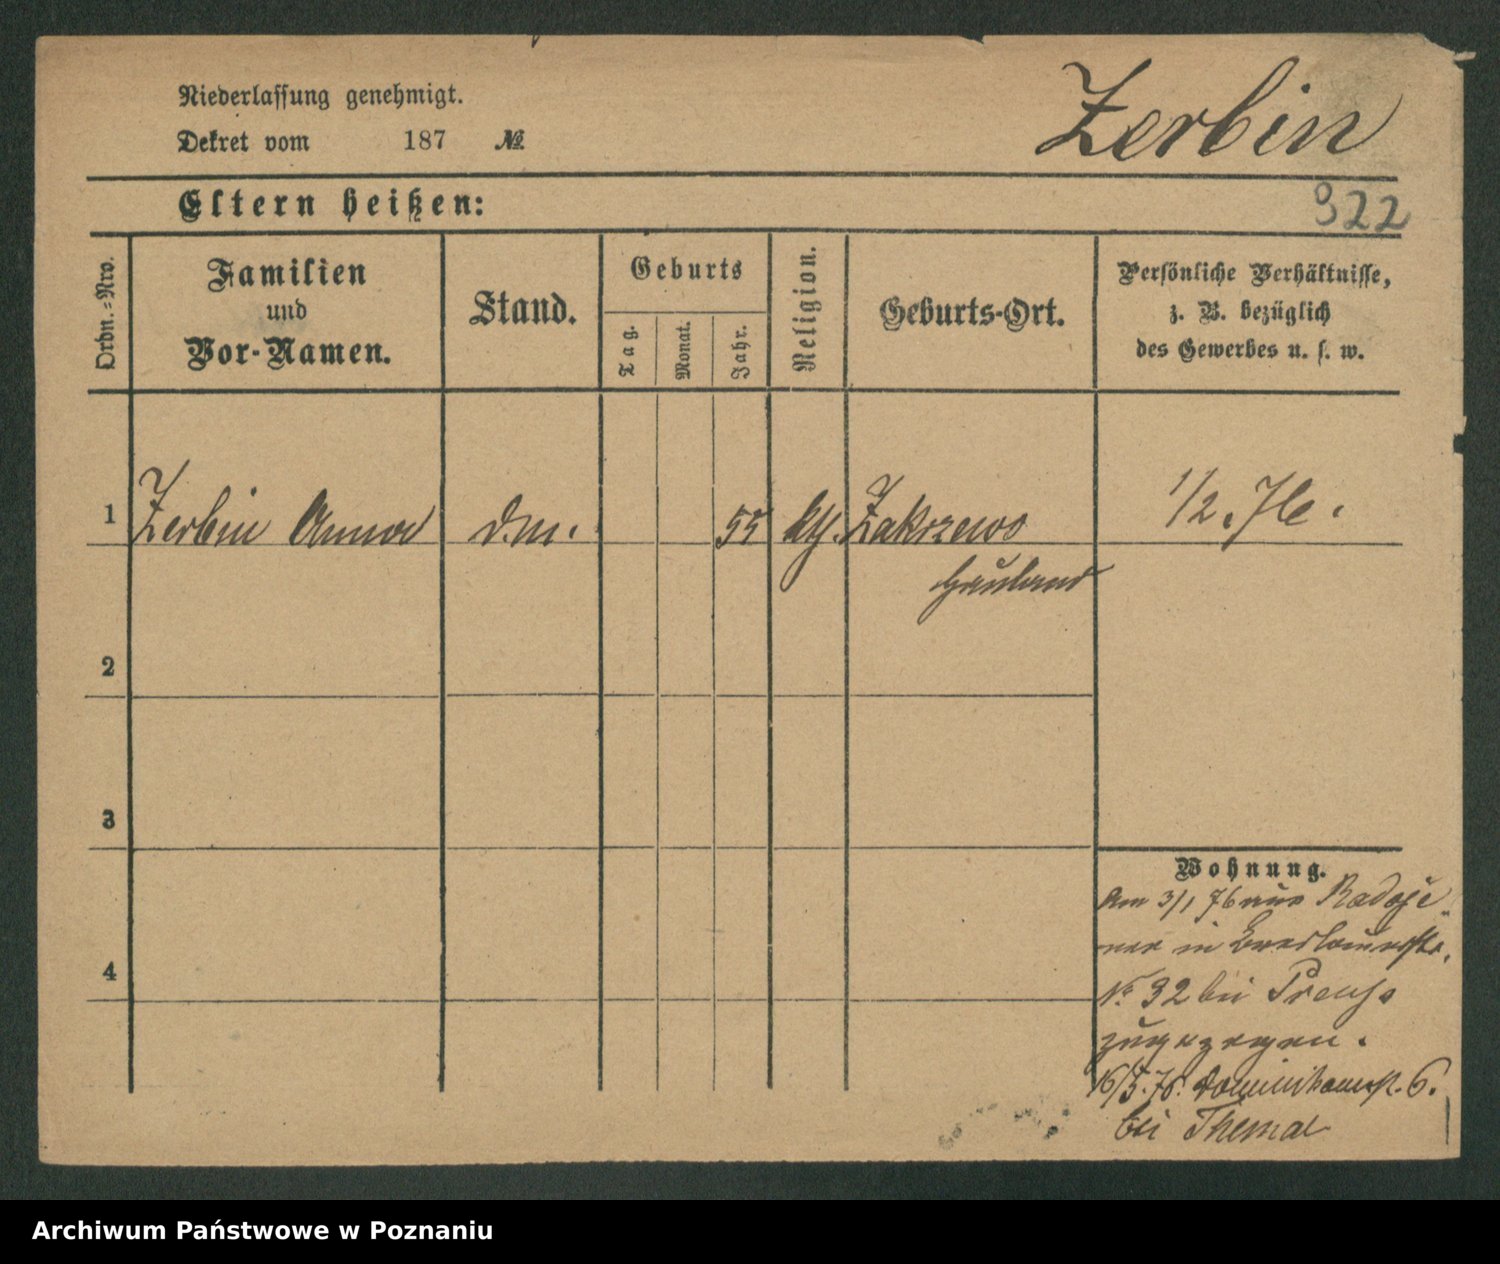 Niederlassung genehmigt.
Dekret vom 187 №
Zerbin
Eltern heißen:
322
Ordn.-Nro.
Familien
und
Vor-Namen.
Stand.
Geburts
Tag.
Monat.
Jahr.
Religion.
Geburts-Ort.
Persönliche Verhältnisse,
z. B. bezüglich
des Gewerbes u. s. w.
1 Zerbin Anna d.m. 55 kth. Zakrzewo 1/2.
Hauland
2
3
4
Wohnung.
Am 3/1 76 aus
in Breslauerstr.
No. 32 bei Preuss
zugezogen.
16/5.76. Dominikanerstr. 6.
bei Themal
Archiwum Państwowe w Poznaniu